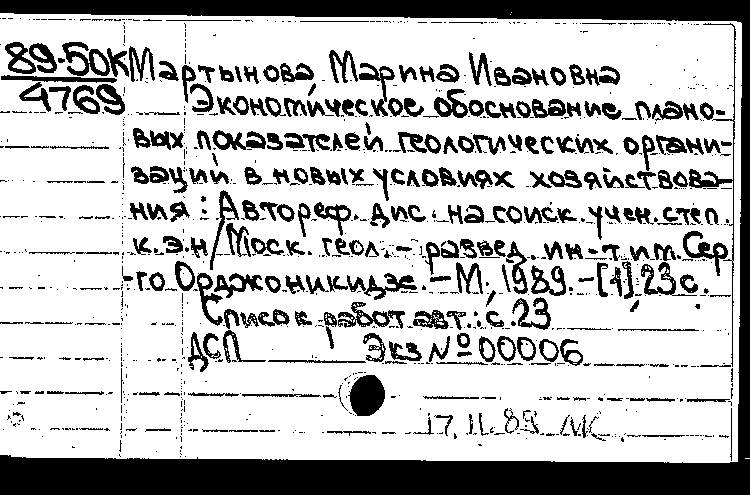 89-50К Мартынова Марина Ивановна
4769 Экономическое обоснование плано-
вых показателей геологических органи-
заций в новых условиях хозяйствова-
ния : Автореф. дис. на соиск. учен. степ.
к.э.н/Моск. геол.-развед. ин-т им. Сер
-го Орджоникидзе. - М., 1989. - [1], 23 с.
Список работ авт.: с. 23
ДСП Экз № 00006
17.11.89